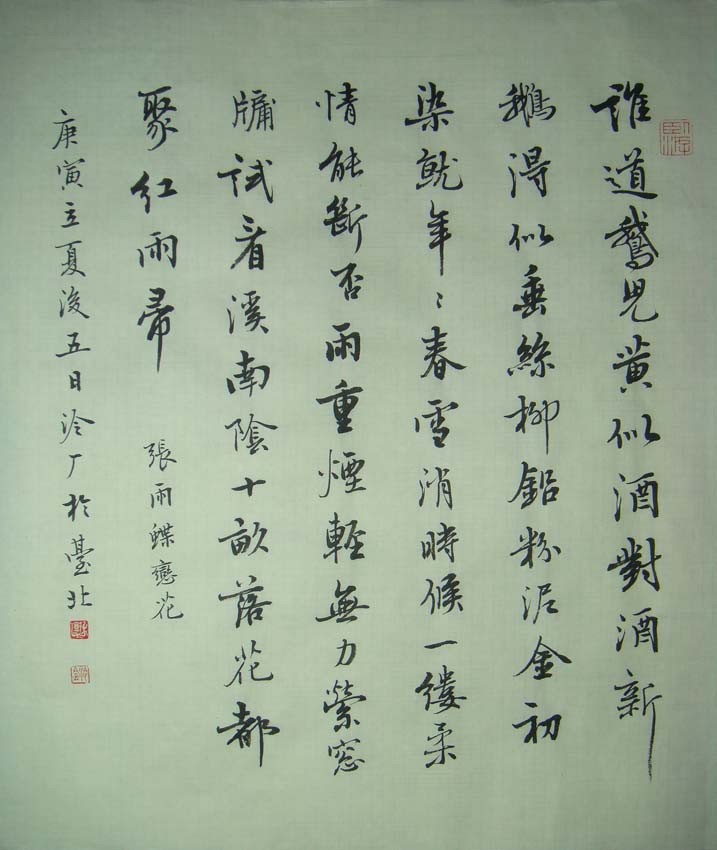 誰道鵞兒黃似酒對酒新
鵝得似垂絲柳鉛粉泥金初
染就年〻春雪消時候一縷柔
情能斷否雨重煙輕無力縈窓
牖試看溪南陰十畝落花都
聚紅雨帚
張雨蝶戀花
庚寅立夏後五日泠厂於臺北